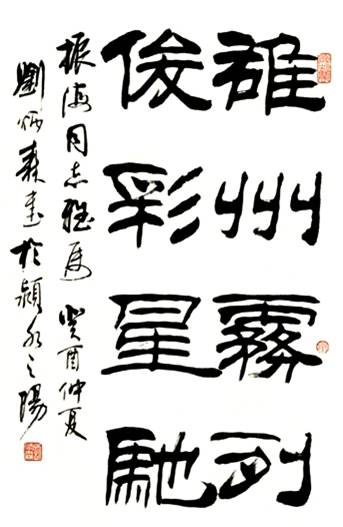 雄州霧列
俊彩星馳
振海同志雅属 癸酉仲夏
劉炳森書於潁水之陽